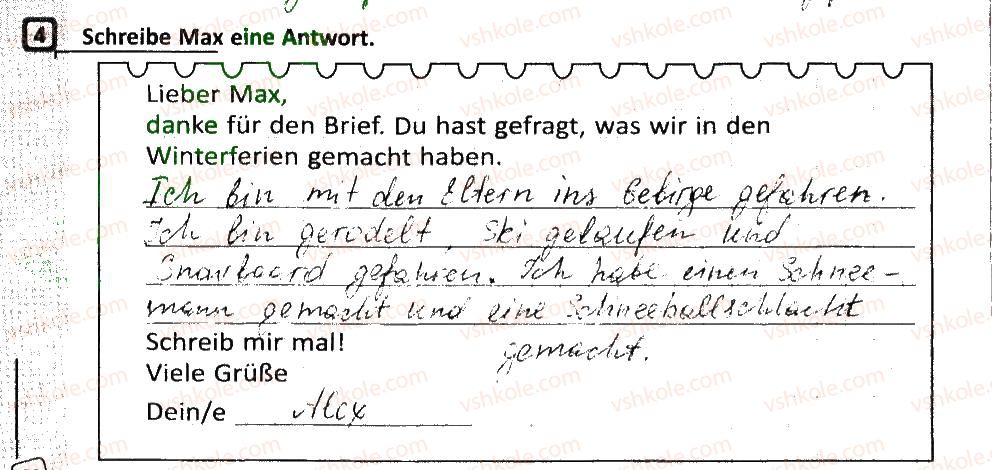 4 Schreibe Max eine Antwort.
Lieber Max,
danke für den Brief. Du hast gefragt, was wir in den
Winterferien gemacht haben.
Ich bin mit den Eltern ins Gebirge gefahren.
Ich bin gerodelt, Ski gelaufen und
Snowboard gefahren. Ich habe einen Schnee-
mann gemacht und eine Schneeballschlacht
gemacht.
Schreib mir mal!
Viele Grüße
Dein/e Alex
vshkole.com